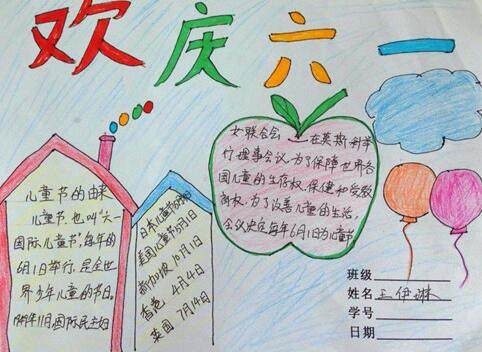 欢庆六一
儿童节的由来
儿童节,也叫“六一
国际儿童节,每年的
6月1日举行,是全世
界少年儿童的节日。
1949年11月,国际民主妇
日本儿童节
美国儿童节5月1日
新加坡10月1日
香港 4月4日
英国 7月14日
女联合会 在莫斯科举
行理事会议,为了保障世界各
国儿童的生存权、保健和受教
育权,为了改善儿童的生活,
会议决定每年6月1日为儿童节
班级
姓名 王伊琳
学号
日期